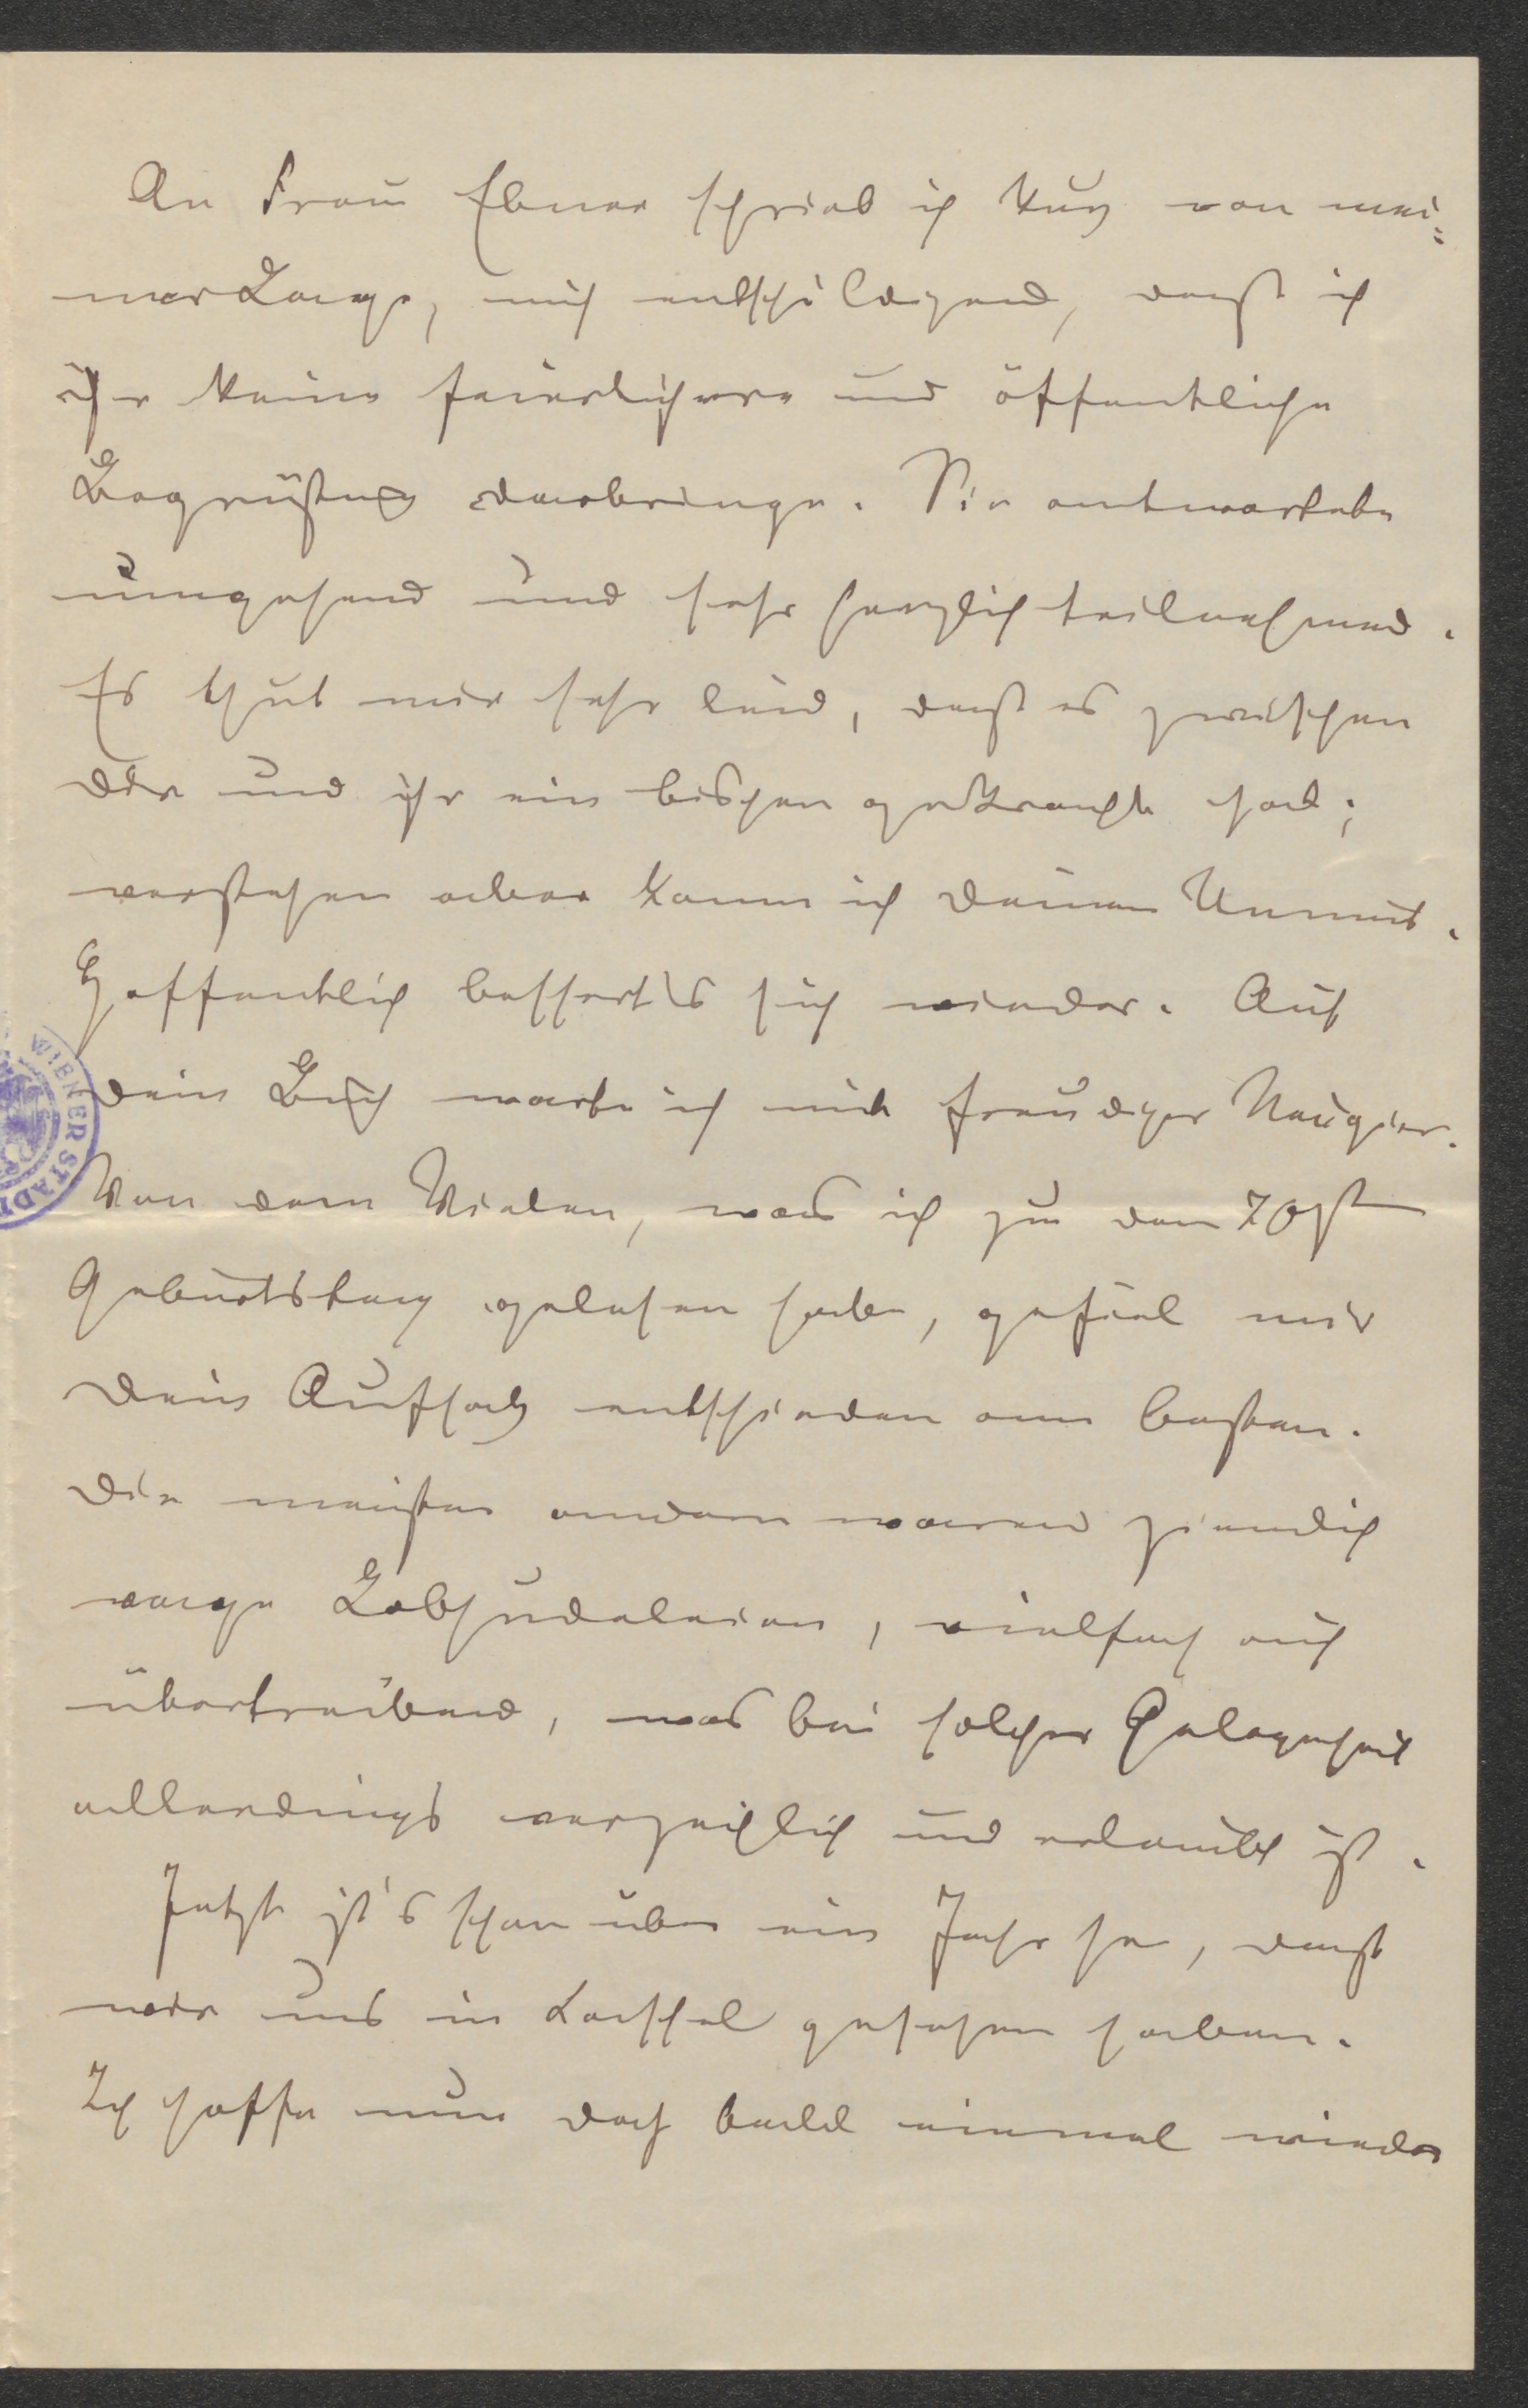 An Frau Ebner schrieb ich kurz von mei-
ner Lage, mich entschuldigend, daß ich
ihr keine feierlichere und öffentliche
Begrüßung darbringe. Sie antwortete
umgehend und sehr herzlich teilnehmend.
Es thut mir sehr leid, daß es zwischen
Dir und ihr ein bischen gekracht hat;
verstehen aber kann ich Deinen Unmut.
Hoffentlich bessert's sich wieder. Auf
Dein Buch warte ich mit freudiger Neugier.
Von dem Vielen, was ich zu dem 70gsten
Geburtstag gelesen habe, gefiel mir
Dein Aufsatz entschieden am besten.
Die meisten andern waren ziemlich
vage Lobhudeleien, vielfach auch
übertreibend, was bei solcher Gelegenheit
allerdings verzeihlich und erlaubt ist.
Jetzt ist's schon über ein Jahr her, daß
wir uns in Kassel gesehen haben.
Ich hoffe nun doch bald einmal wieder
WIENER STADT